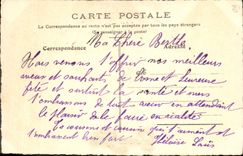 CARTE POSTALE
La Correspondance au verso n'est pas acceptée par tous les pays étrangers
(Se renseigner à la poste)
Correspondance
Ma Chère Berthe
Nous venons t'offrir nos meilleurs
vœux et souhaits de bonne et heureuse
fête et surtout la santé et nous
t'embrassons de tout cœur en attendant
le plaisir de le faire en réalité
tes cousins et cousine qui t'aiment et
t'embrassent bien fort